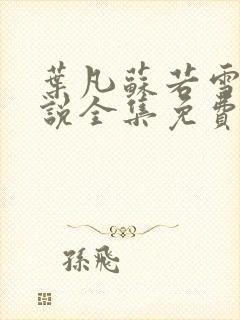 葉凡蘇若雪
說全集免費
孫飛